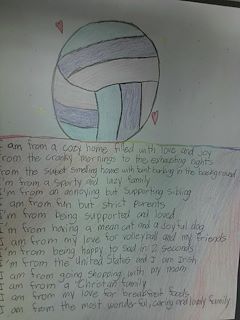 I am from a cozy home filled with love and joy
From the cranky mornings to the exhausting nights
From the sweet smelling home with tv burning in the background
I'm from a sporty and lazy family
I'm from an annoying but supporting sibling
I am from fun but strict parents
I'm from being supported and loved
I'm from having a mean cat and a joyful dog
I am from my love for volleyball and my friends
I'm from being happy to sad in 2 seconds
I'm from the United States and I am Irish
I am from going shopping with my mom
I am from a Christian family
I am from my love for breakfast foods
I am from the most wonderful, caring and lovely family